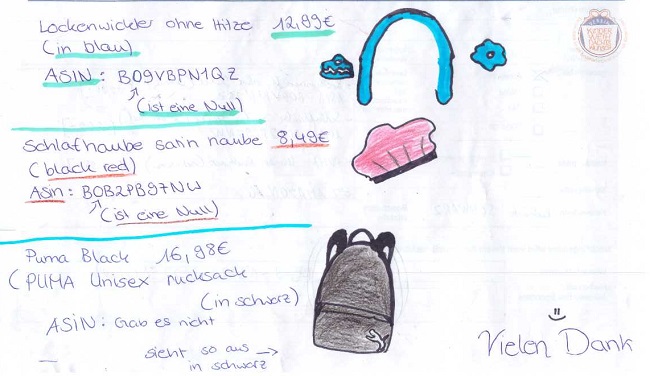 Lockenwickler ohne Hitze 12,99€
(in blau)
ASIN: B09VBPN1QZ
(ist eine Null)
Schlafhaube satin haube 8,49€
(black red)
ASin: B0B2PB97NW
(ist eine Null)
Puma Black 16,98€
(PUMA Unisex rucksack
(in schwarz)
ASIN: Gab es nicht
sieht so aus →
in schwarz
Vielen Dank